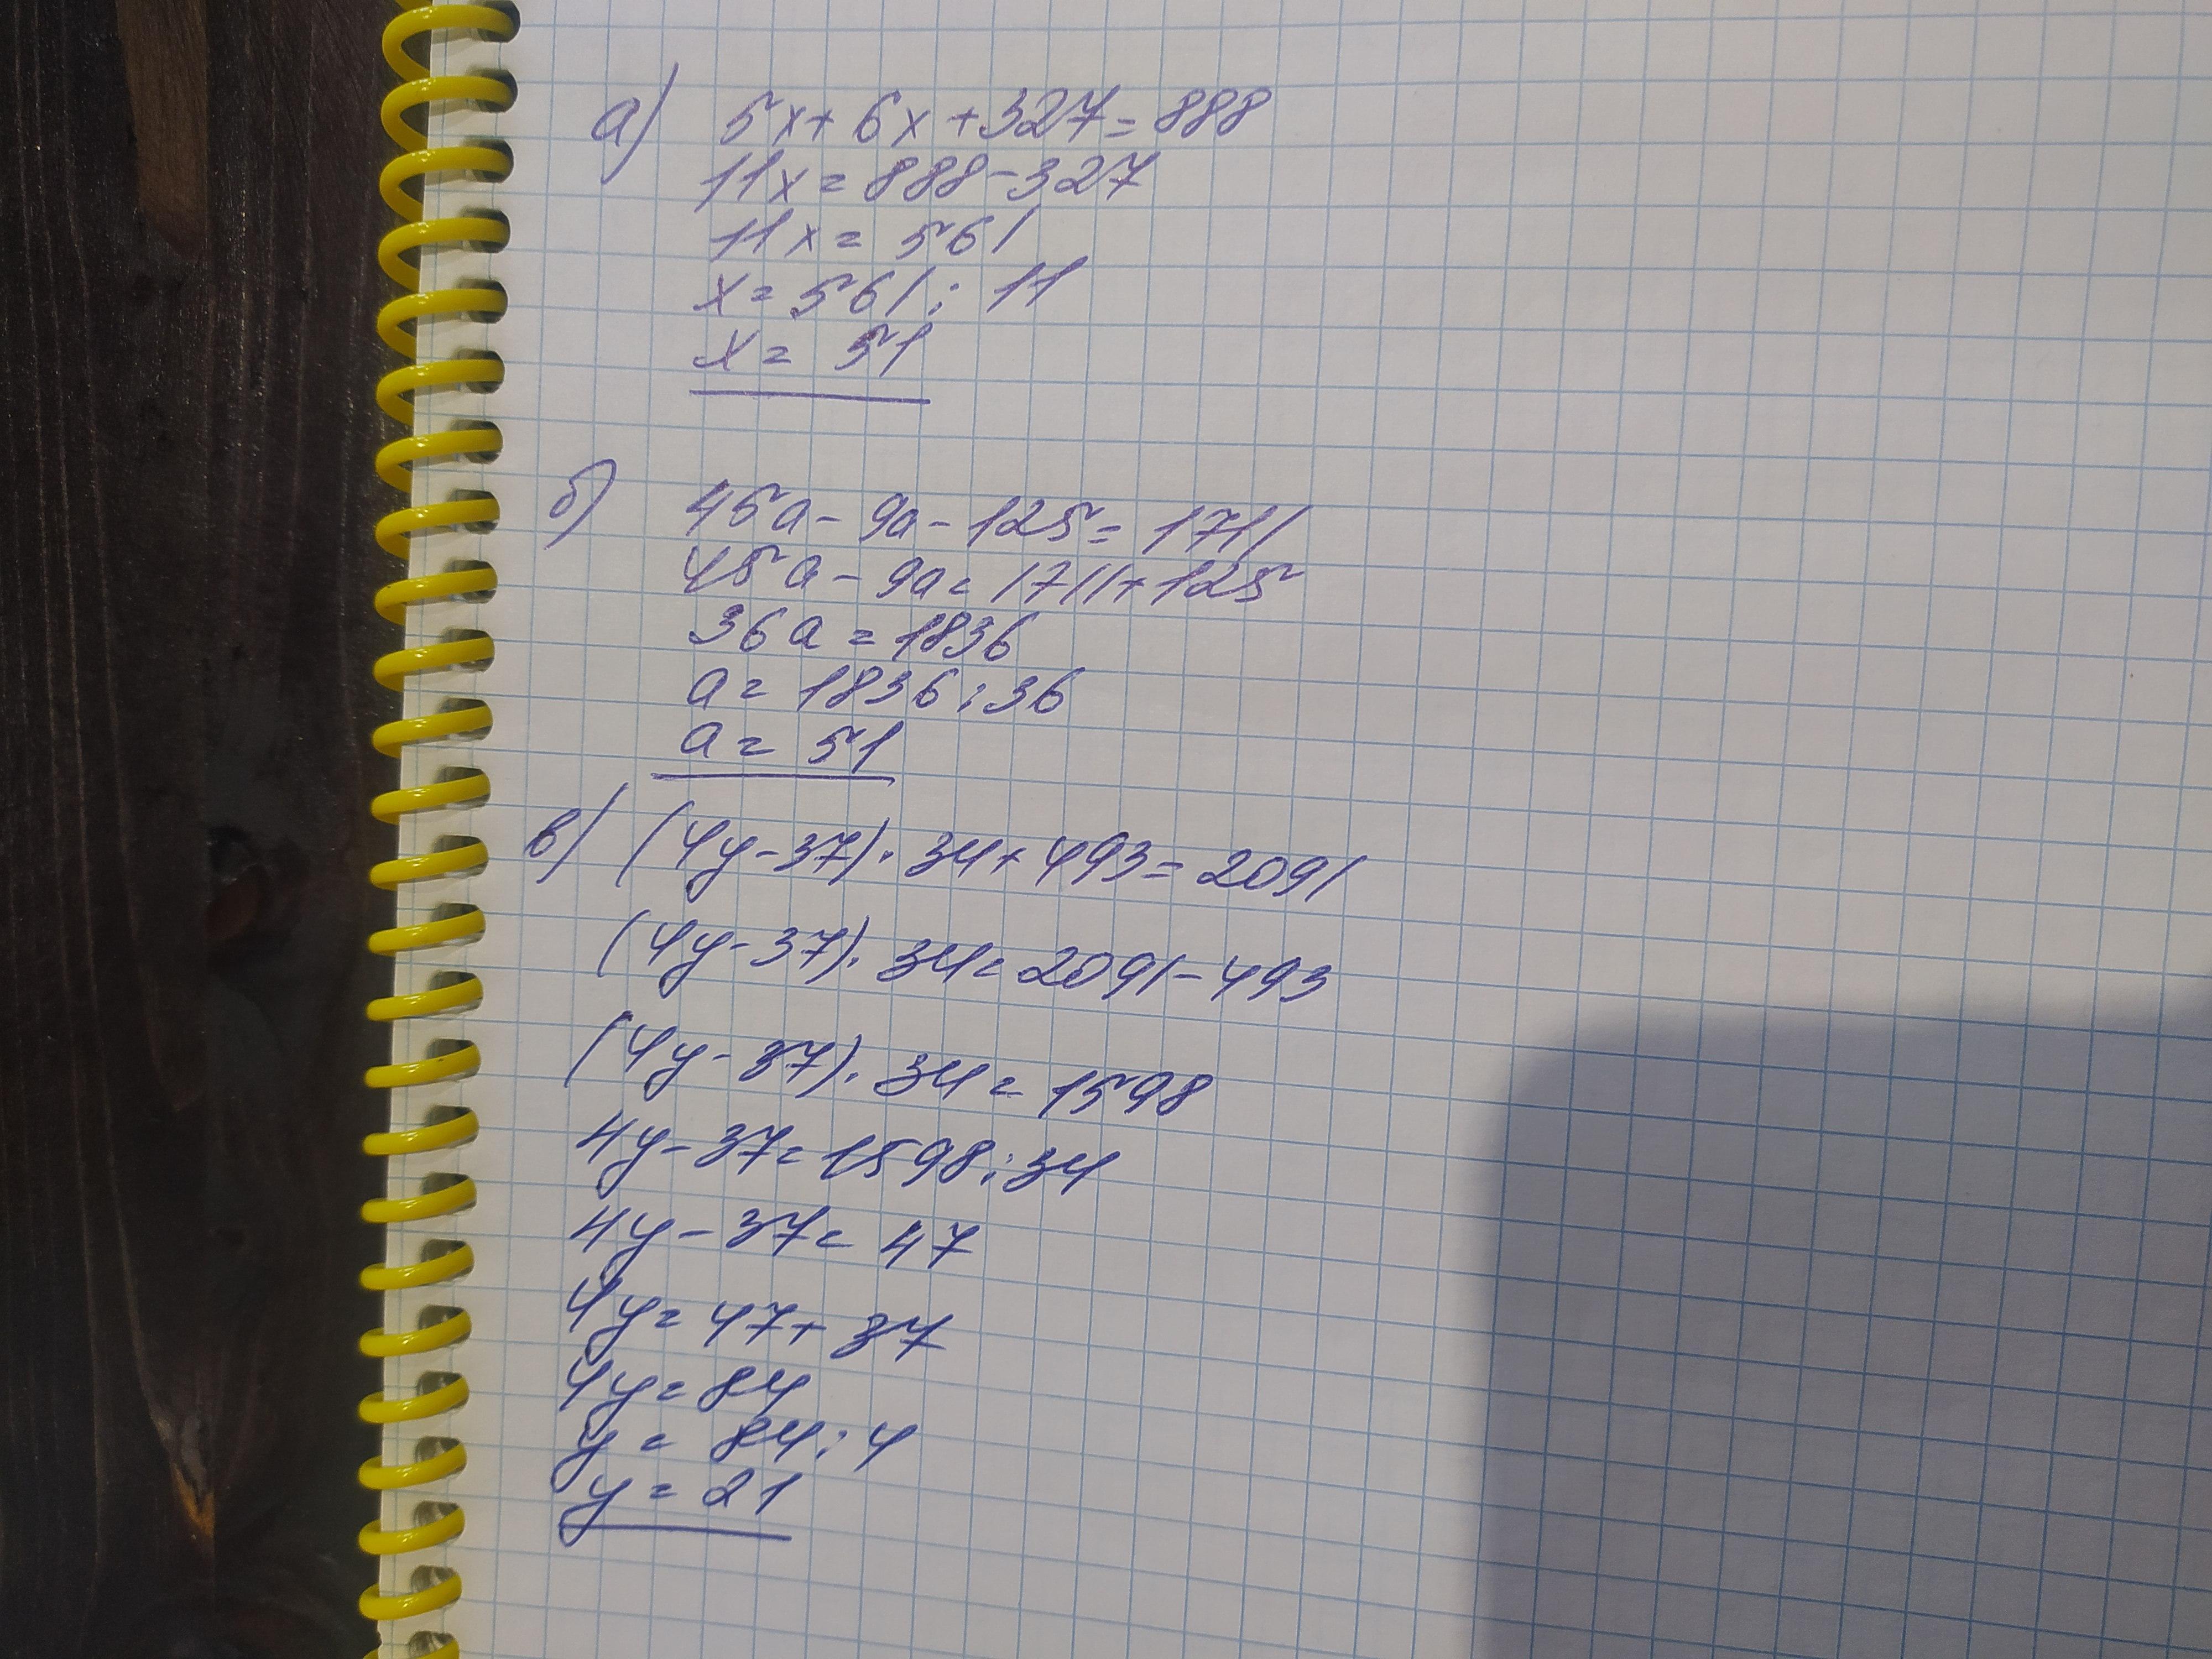 а) 5x+6x+327=888
11x=888-327
11x=561
x=561:11
x=51
б) 45a-9a-125=1711
45a-9a=1711+125
36a=1836
a=1836:36
a=51
в) (4y-37)·34+493=2091
(4y-37)·34=2091-493
(4y-37)·34=1598
4y-37=1598:34
4y-37=47
4y=47+37
4y=84
y=84:4
y=21